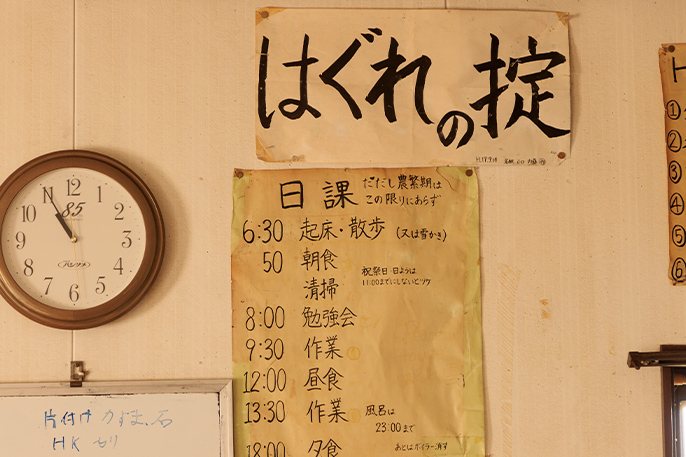 はぐれの掟
H
①
②
③
④
⑤
⑥
12
1
2
3
4
5
6
7
8
9
10
11
85
日課 ただし農繁期は
この限りにあらず
6:30 起床・散歩 (又は雪かき)
50 朝食
祝祭日・日ようは
清掃
8:00 勉強会
9:30 作業
12:00 昼食
13:30 作業 風呂は
23:00まで
18:00 夕食 あとはボイラー消す
片付け
HK